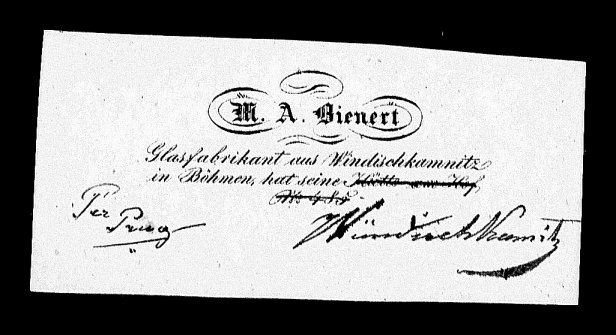 M. A. Bienert
Glasfabrikant aus Windischkamnitz
in Böhmen, hat seine Hütte am Hof
No 485.
Per
Prag
Windischkamnitz